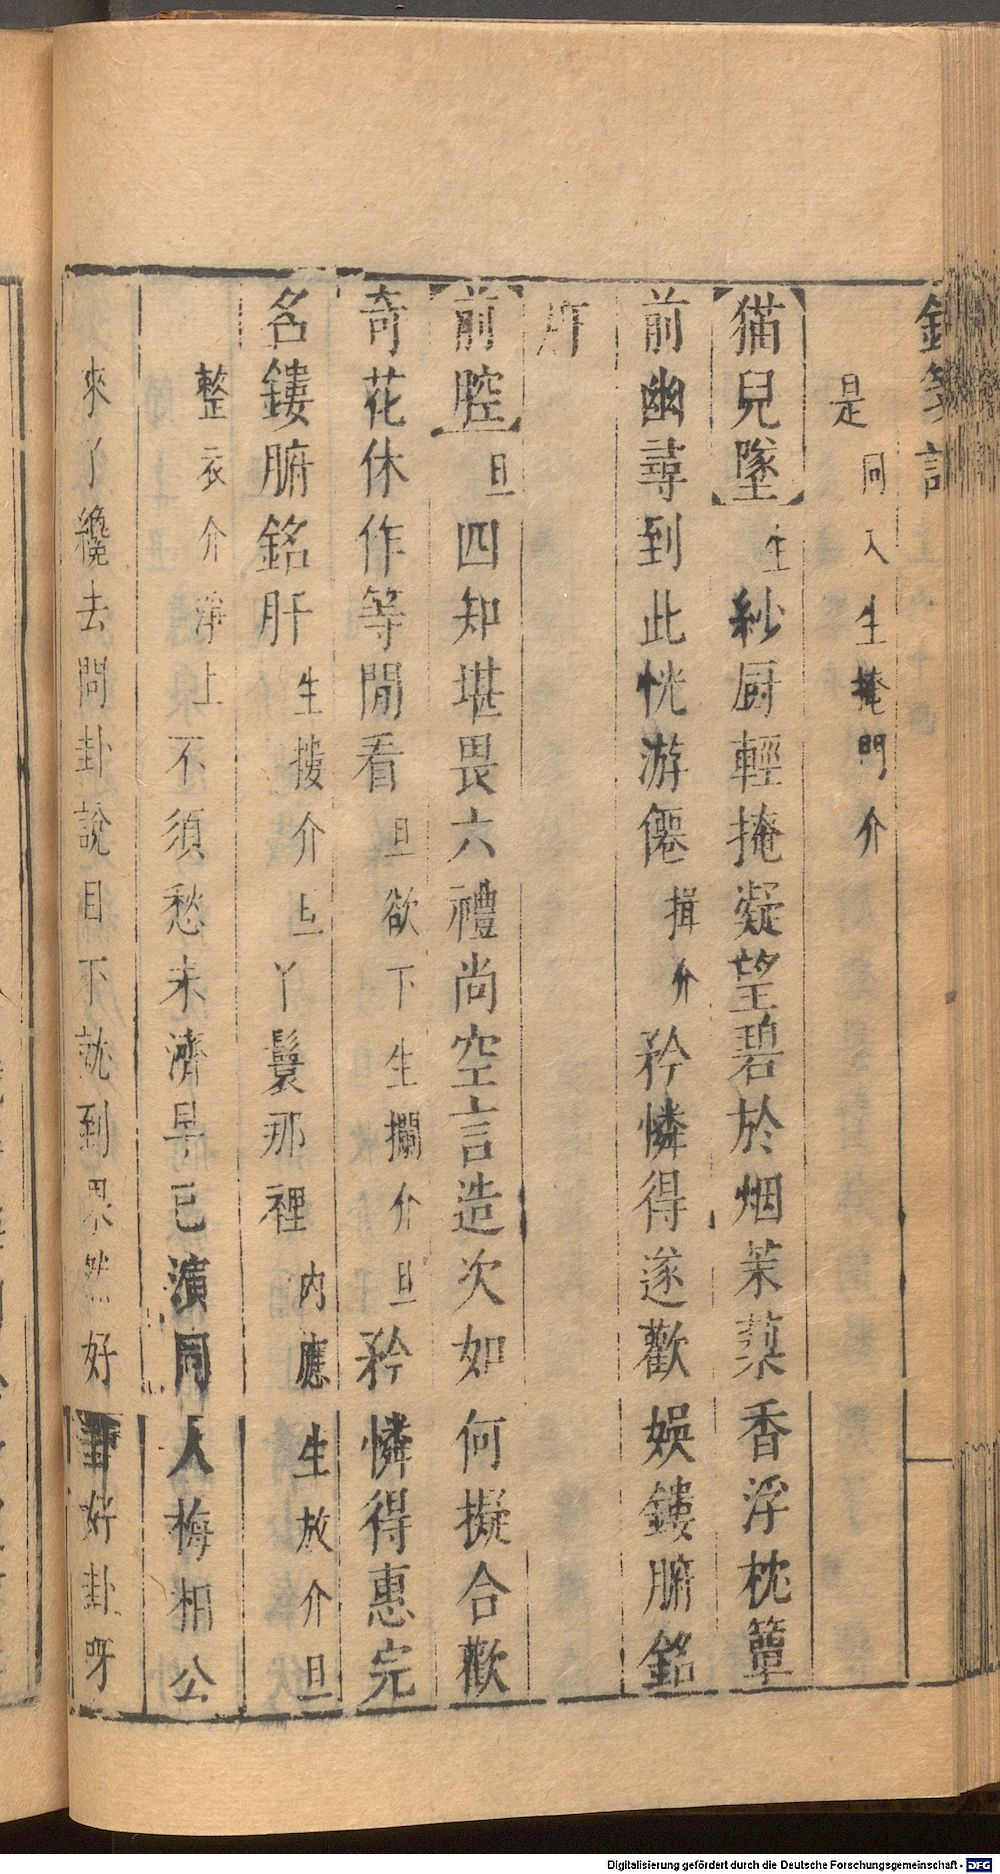 是同入生掩門介
猫兒墜生紗厨輕掩凝望碧於烟茉蔾香浮枕簟
前幽尋到此恍游僊揖介矜憐得遂歡娛鏤腑銘
肝
前腔旦四知堪畏六禮尚空言造次如何擬合歡
奇花休作等閒看旦欲下生攔介旦矜憐得惠完
名鏤腑銘肝生摟介旦丫鬟那裡内應生放介旦
整衣介淨上不須愁未濟早已演同人梅相公
來了纔去問卦說目下就到果然好卦好卦呀
Digitalisierung gefördert durch die Deutsche Forschungsgemeinschaft - DFG